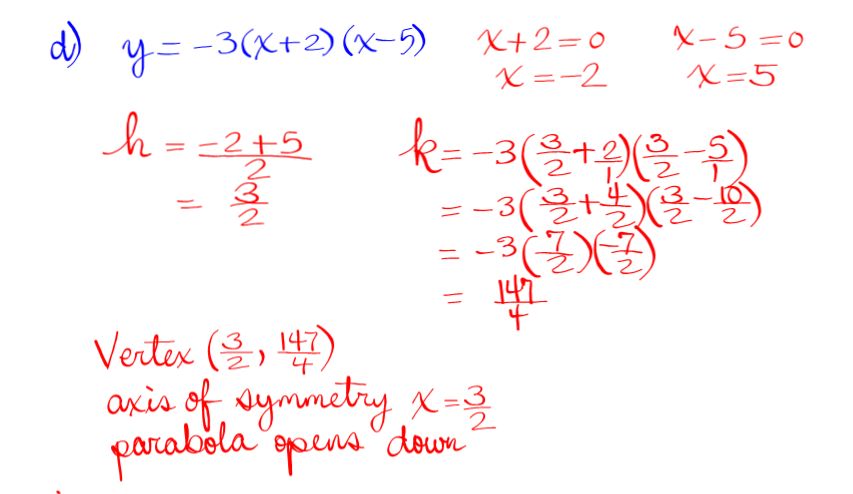 d) y = -3(x+2)(x-5)
x+2=0
x=-2
x-5=0
x=5
h = \frac{-2+5}{2}
= \frac{3}{2}
k = -3(\frac{3}{2}+\frac{2}{1})(\frac{3}{2}-\frac{5}{1})
= -3(\frac{3}{2}+\frac{4}{2})(\frac{3}{2}-\frac{10}{2})
= -3(\frac{7}{2})(\frac{-7}{2})
= \frac{147}{4}
Vertex (\frac{3}{2}, \frac{147}{4})
axis of symmetry x = \frac{3}{2}
parabola opens down